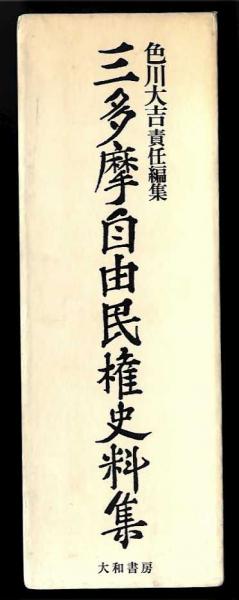 色川大吉責任編集
三多摩自由民権史料集
大和書房